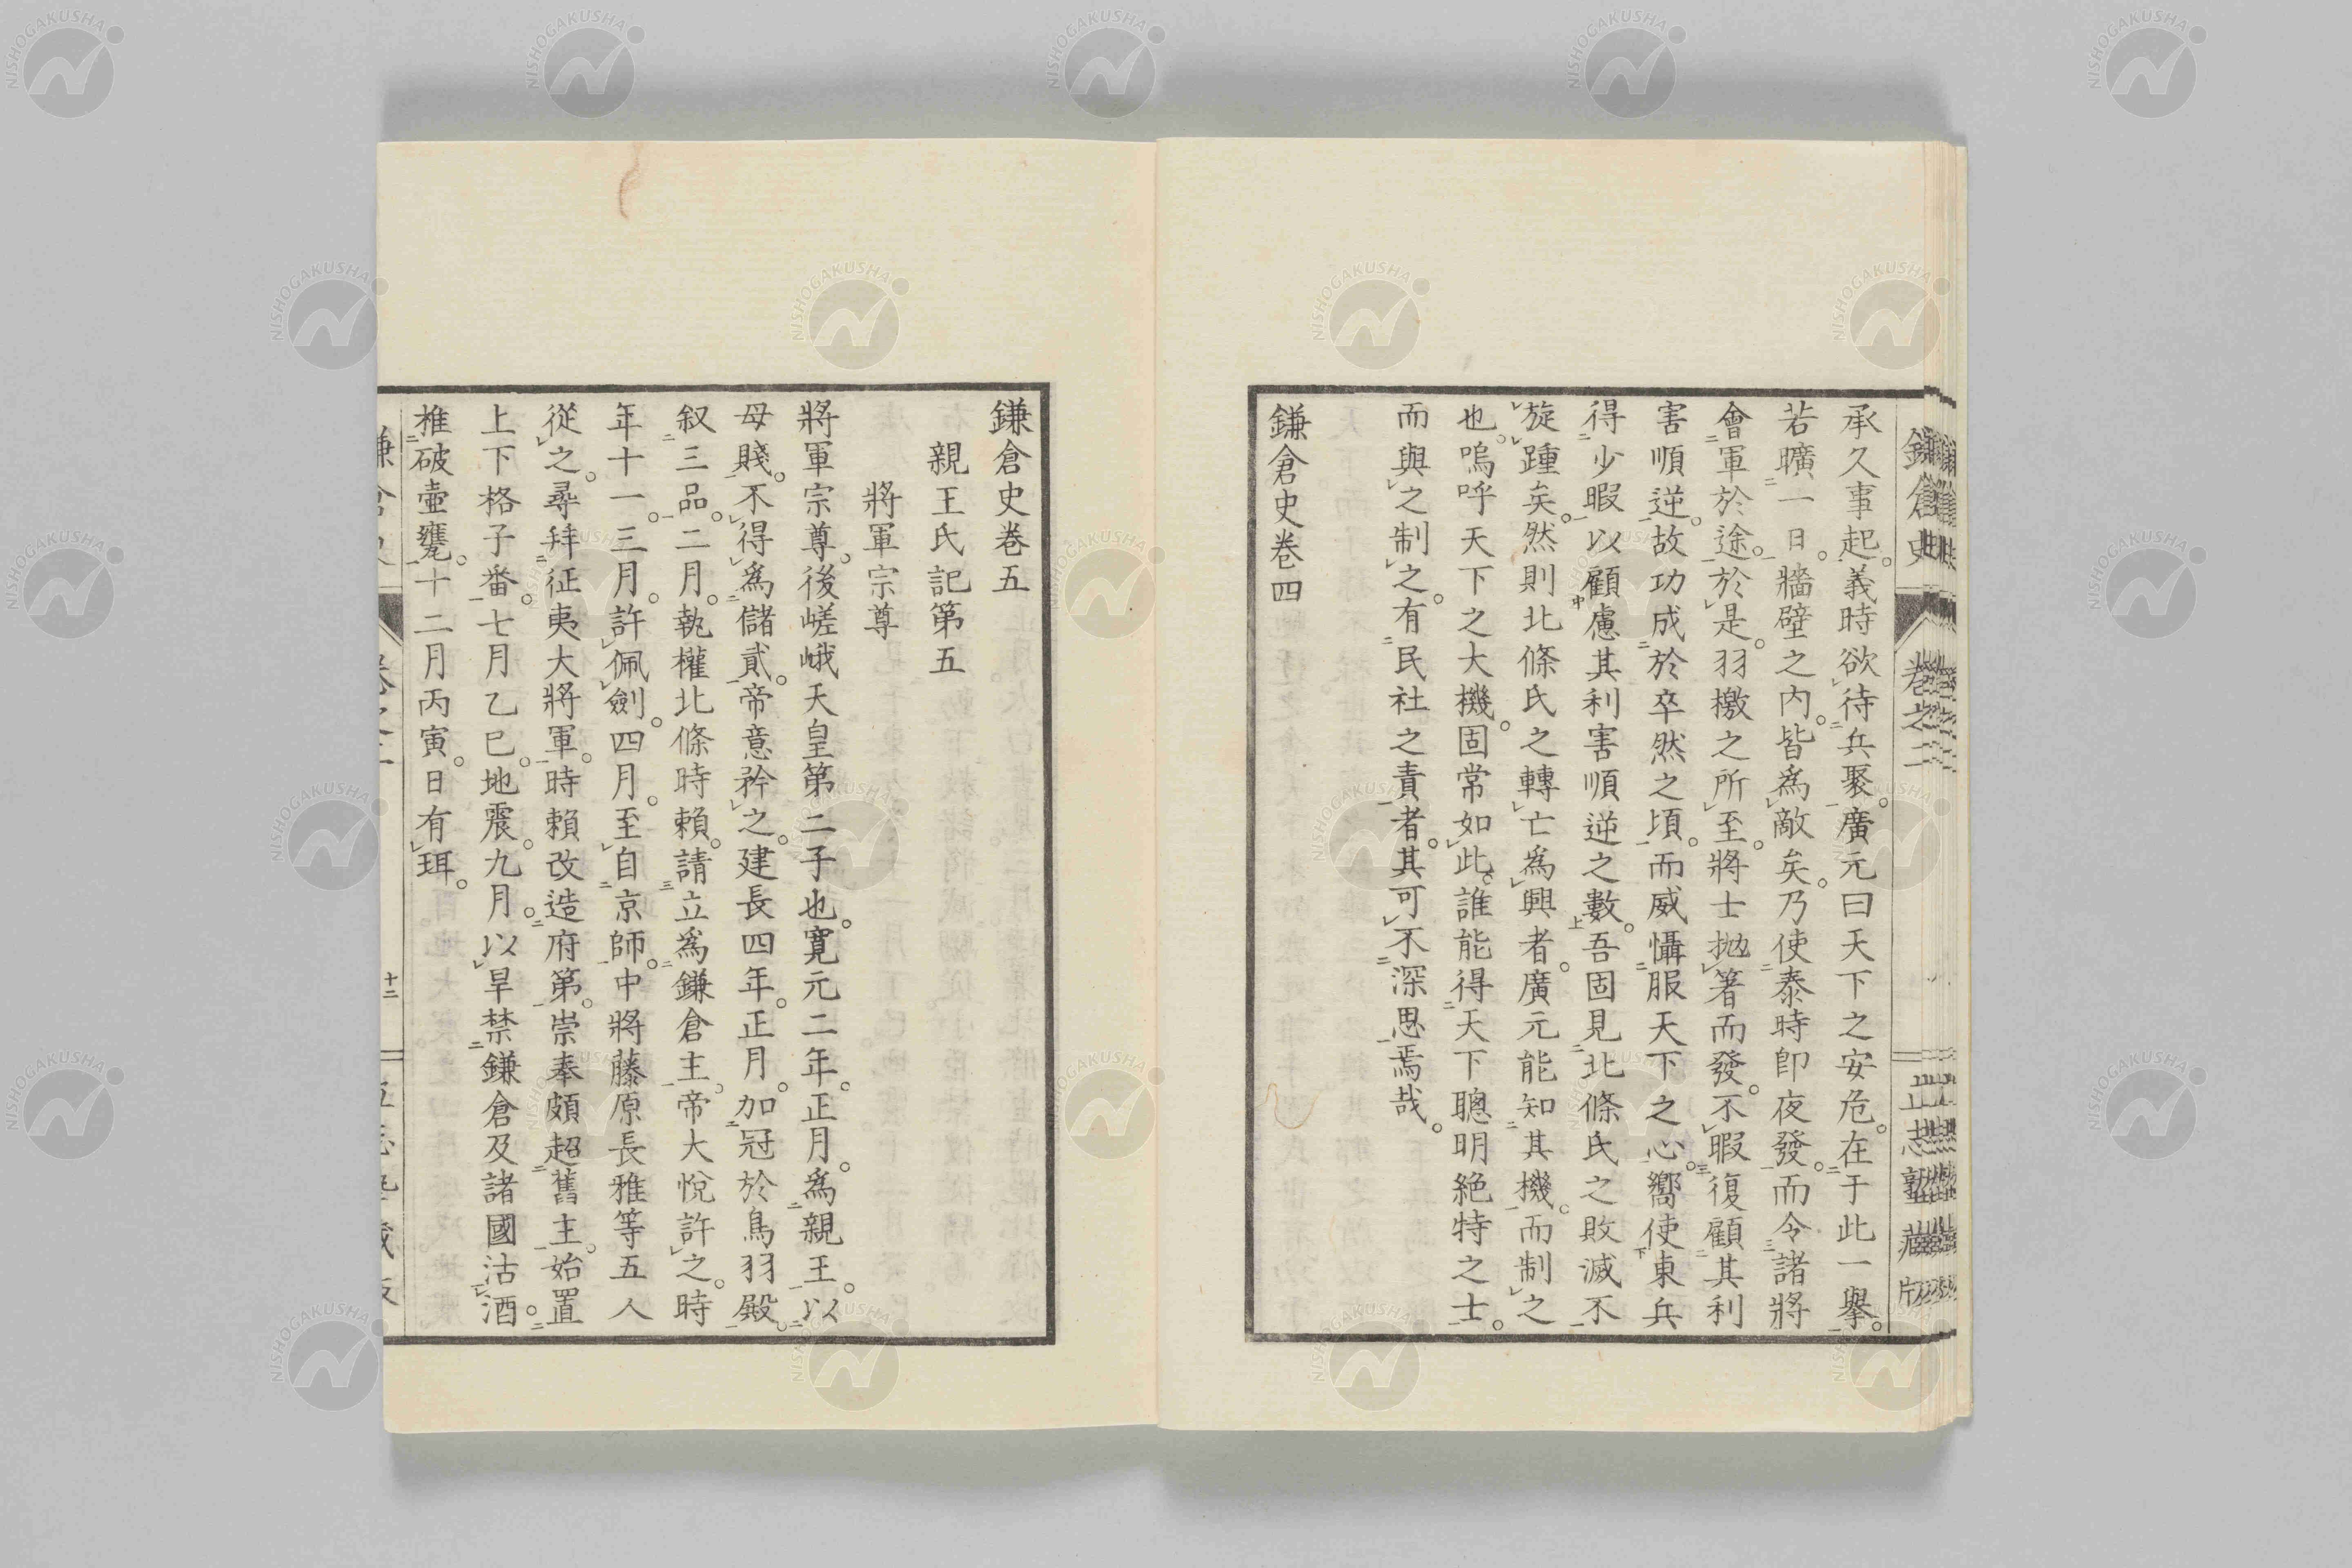 承久事起。義時欲待兵聚。廣元曰天下之安危。在于此一擧。
若曠一日。牆壁之內。皆爲敵矣。乃使泰時卽夜發。而令諸將
會軍於途。於是。羽檄之所至。將士抛箸而發。不暇復顧其利
害順逆。故功成於卒然之頃。而威懾服天下之心。嚮使東兵
得少暇以顧慮其利害順逆之數。吾固見北條氏之敗滅不
旋踵矣。然則北條氏之轉亡爲興者。廣元能知其機。而制之
也。嗚呼天下之大機。固常如此。誰能得天下聰明絕特之士。
而與之制之。有民社之責者。其可不深思焉哉。
鎌倉史卷四
鎌倉史卷五
親王氏記第五
將軍宗尊
將軍宗尊。後嵯峨天皇第二子也。寬元二年。正月。爲親王。以
母賤。不得爲儲貳。帝意矜之。建長四年。正月。加冠於鳥羽殿。
叙三品。二月。執權北條時賴。請立爲鎌倉主。帝大悅許之。時
年十一。三月。許佩劍。四月。至自京師。中將藤原長雅等五人
從之。尋拜征夷大將軍。時賴改造府第。崇奉頗超舊主。始置
上下格子番。七月乙巳。地震。九月。以旱禁鎌倉及諸國沽酒。
椎破壷甕。十二月丙寅。日有珥。
十二
NISHOGAKUSHA